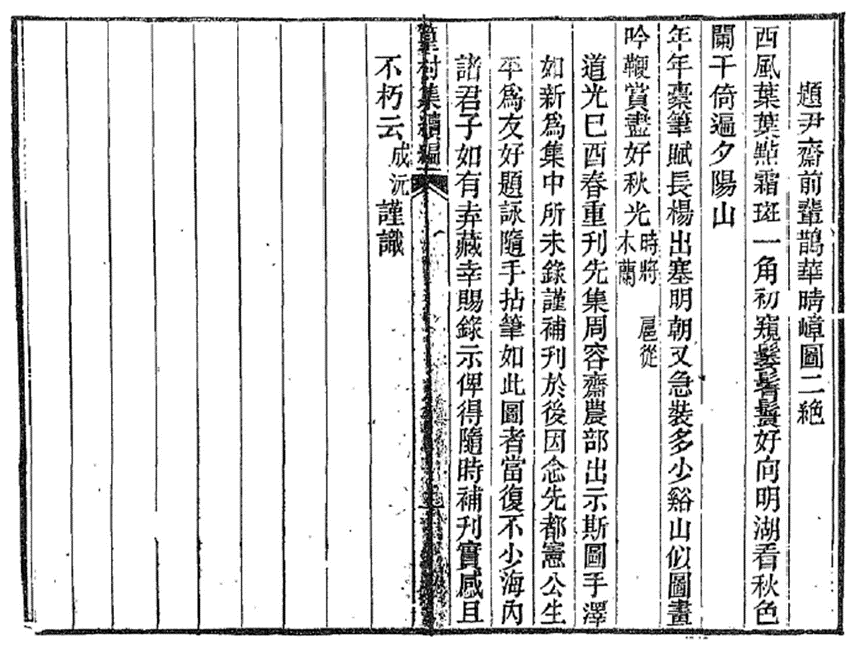 題尹齋前輩鵲華時嶂圖二絶
西風葉葉點霜斑一角初窺鬘髻鬟好向明湖看秋色
闌干倚遍夕陽山
年年橐筆賦長楊出塞明朝又急裝多少谿山似圖畫
吟鞭賞盡好秋光時將 扈從木蘭
道光已酉春重刊先集周容齋農部出示斯圖手澤
如新爲集中所未錄謹補刊於後因念先都憲公生
平爲友好題詠隨手拈筆如此圖者當復不少海內
諸君子如有弆藏幸賜錄示俾得隨時補刊實感且
篁村集續編
不朽云成沅謹識